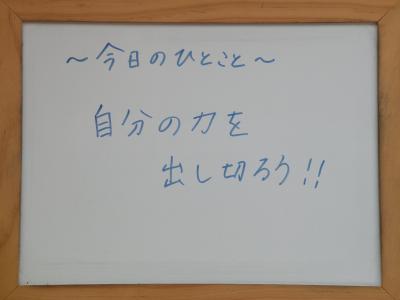 ～今日のひとこと～
自分の力を
出し切ろう!!